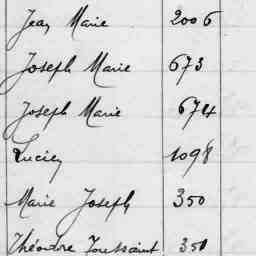 Jean Marie 2006
Joseph Marie 673
Joseph Marie 674
Lucien 1098
Marie Joseph 350
Théodore Toussaint 351